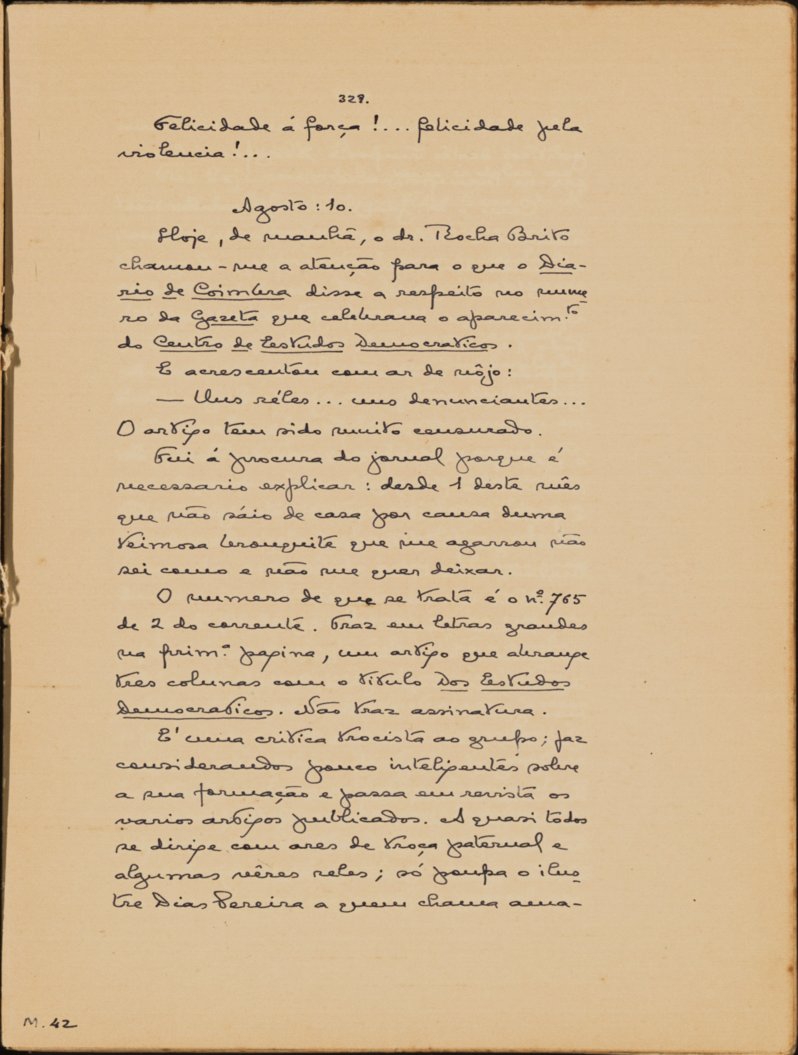 329.
Felicidade á força!... felicidade pela
violencia!...
Agosto: 10.
Hoje, de manhã, o dr. Rocha Brito
chamou-me a atenção para o que o Dia-
rio de Coimbra disse a respeito no nume
ro da Gazeta que celebrava o aparecim.to
do Centro de Estudos Democraticos.
E acrescentou com ar de nôjo:
— Uns réles... uns denunciantes...
O artigo tem sido muito censurado.
Fui á procura do jornal porque é
necessario explicar: desde 1 deste mês
que não sáio de casa por causa duma
teimosa bronquite que me agarrou não
sei como e não me quer deixar.
O numero de que se trata é o nº. 765
de 2 do corrente. Traz em letras grandes
na prim.ª pagina, um artigo que abrange
tres colunas com o titulo Dos Estudos
Democraticos. Não traz assinatura.
E' uma critica trocista ao grupo; faz
considerandos pouco inteligentes sobre
a sua formação e passa em revista os
varios artigos publicados. A quasi todos
se dirige com ares de troça paternal e
algumas vêzes reles; só poupa o ilus-
tre Dias Pereira a quem chama ama-
M. 42